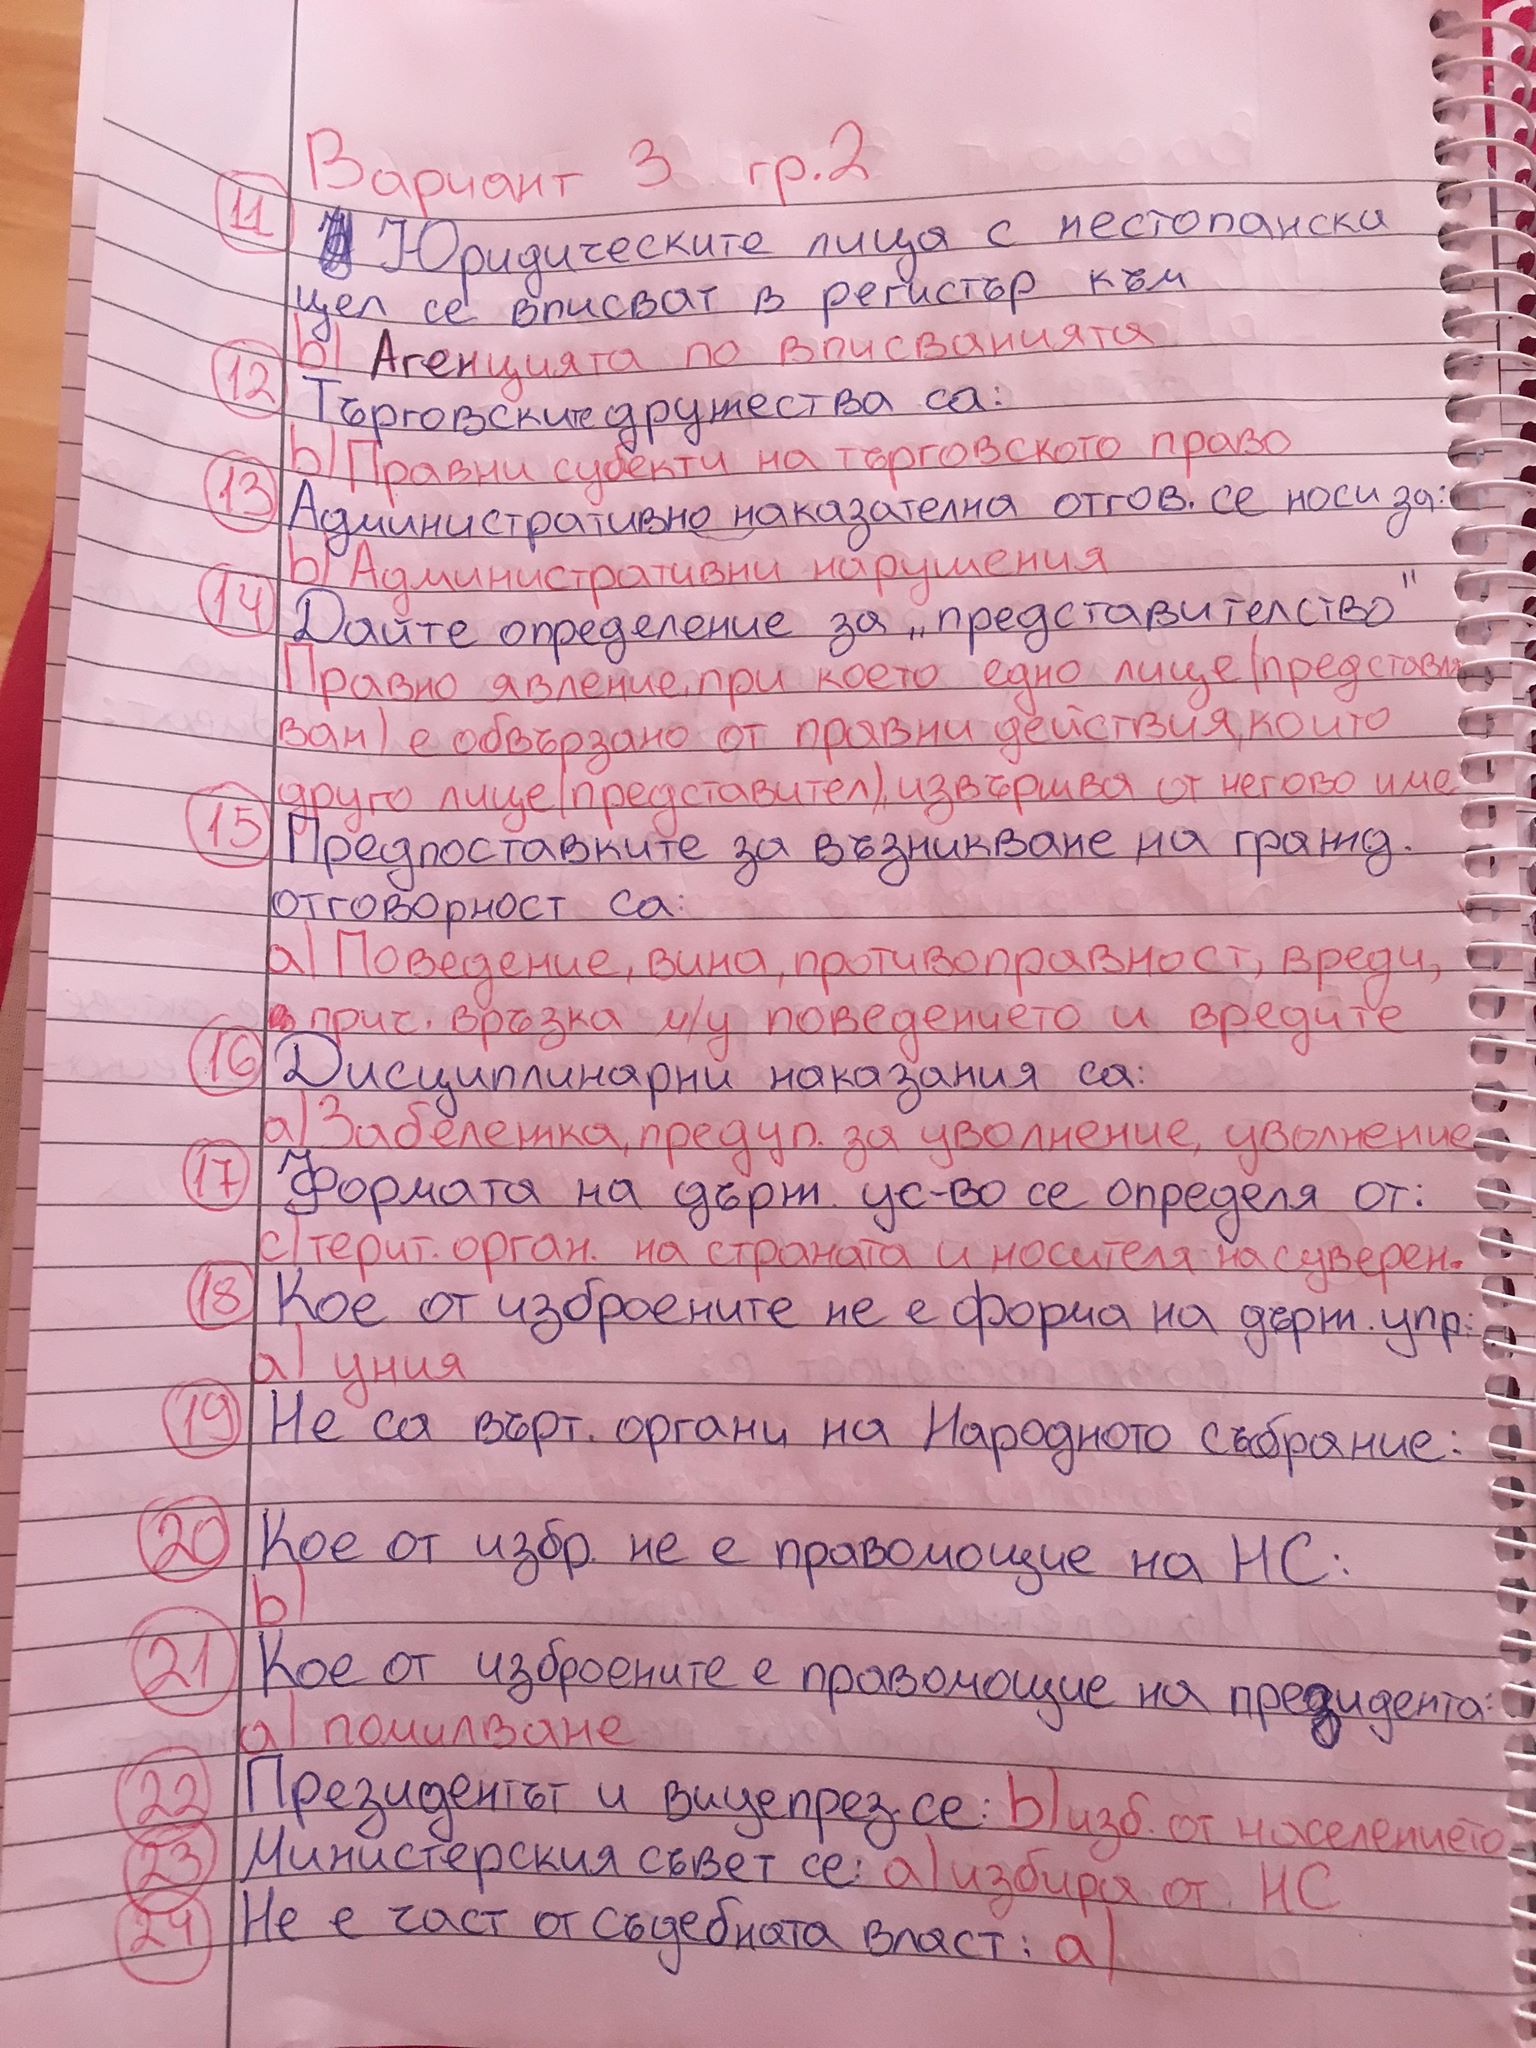 Вариант 3 гр.2
11 Юридическите лица с нестопанска
цел се вписват в регистър към
b) Агенцията по вписванията
12 Търговските дружества са:
b) Правни субекти на търговското право
13 Административно наказателна отгов. се носи за:
b) Административни нарушения
14 Дайте определение за „представителство"
Правно явление, при което едно лице (представля
ван) е обвързано от правни действия, които
друго лице (представител), извършва от негово име
15 Предпоставките за възникване на гражд.
отговорност са:
a) Поведение, вина, противоправност, вреди,
прич. връзка м/у поведението и вредите
16 Дисциплинарни наказания са:
a) Забележка, предуп. за уволнение, уволнение
17 Формата на държ. ус-во се определя от:
c) терит. орган. на страната и носителя на суверен.
18 Кое от изброените не е форма на държ. упр:
a) уния
19 Не са върт. органи на Народното събрание:
20 Кое от избр. не е правомощие на НС:
b)
21 Кое от изброените е правомощие на президента:
a) помилване
22 Президентът и вицепрез. се: b) изб. от населението
23 Министерския съвет се: a) избира от НС
24 Не е част от съдебната власт: a)